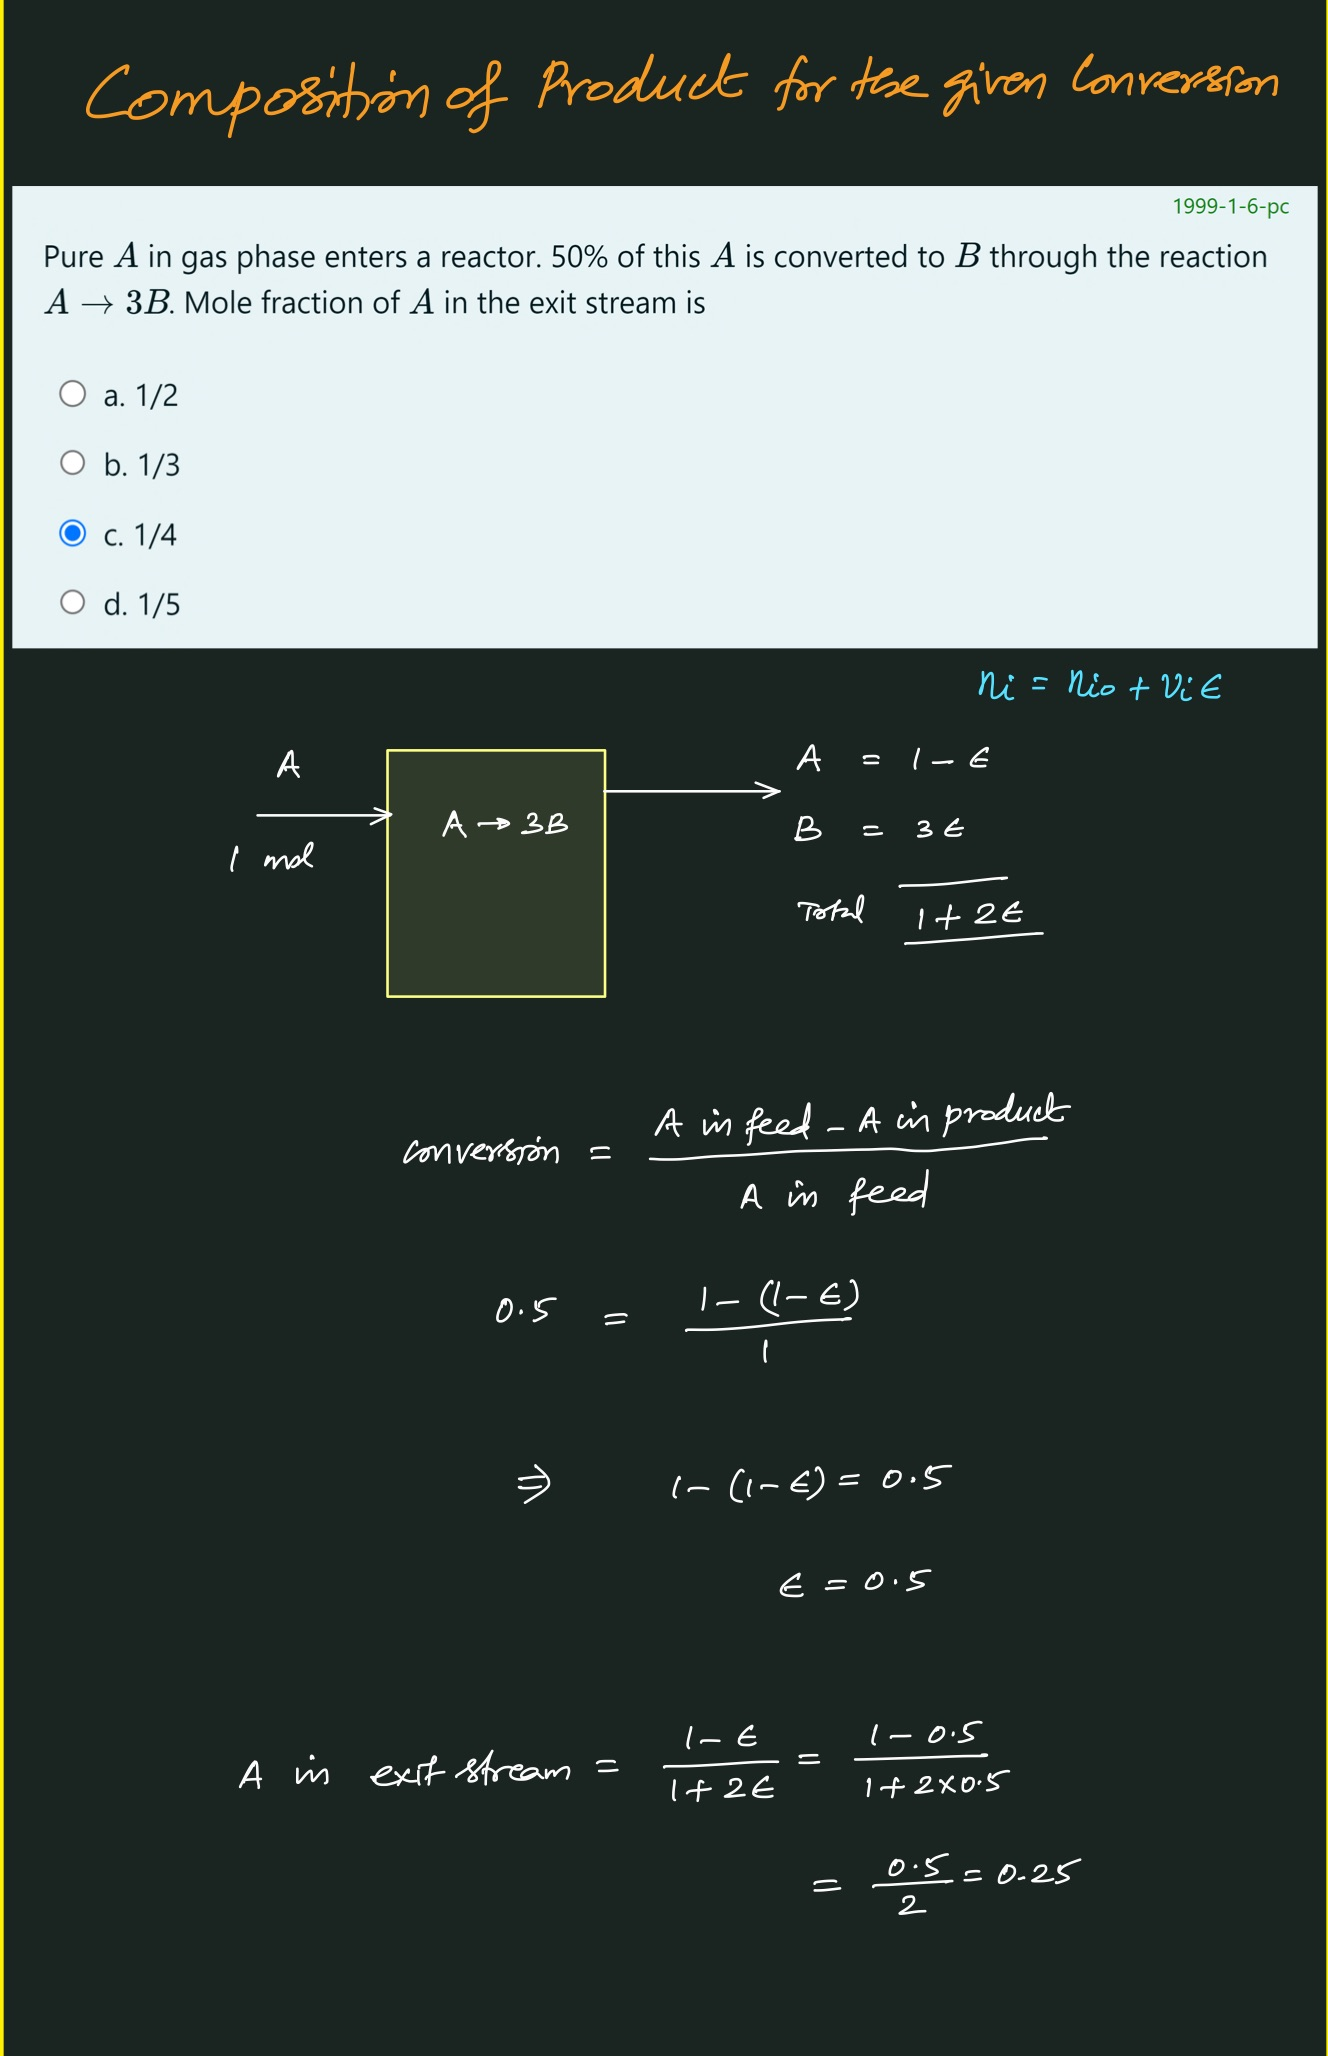 Composition of Product for the given Conversion
1999-1-6-pc
Pure A in gas phase enters a reactor. 50% of this A is converted to B through the reaction
A → 3B. Mole fraction of A in the exit stream is
a. 1/2
b. 1/3
c. 1/4
d. 1/5
ni = nio + νi ϵ
A
1 mol
A → 3B
A = 1 - ϵ
B = 3 ϵ
Total 1 + 2ϵ
conversion = (A in feed - A in product) / (A in feed)
0.5 = (1 - (1 - ϵ)) / 1
⇒ 1 - (1 - ϵ) = 0.5
ϵ = 0.5
A in exit stream = (1 - ϵ) / (1 + 2ϵ) = (1 - 0.5) / (1 + 2×0.5)
= 0.5 / 2 = 0.25